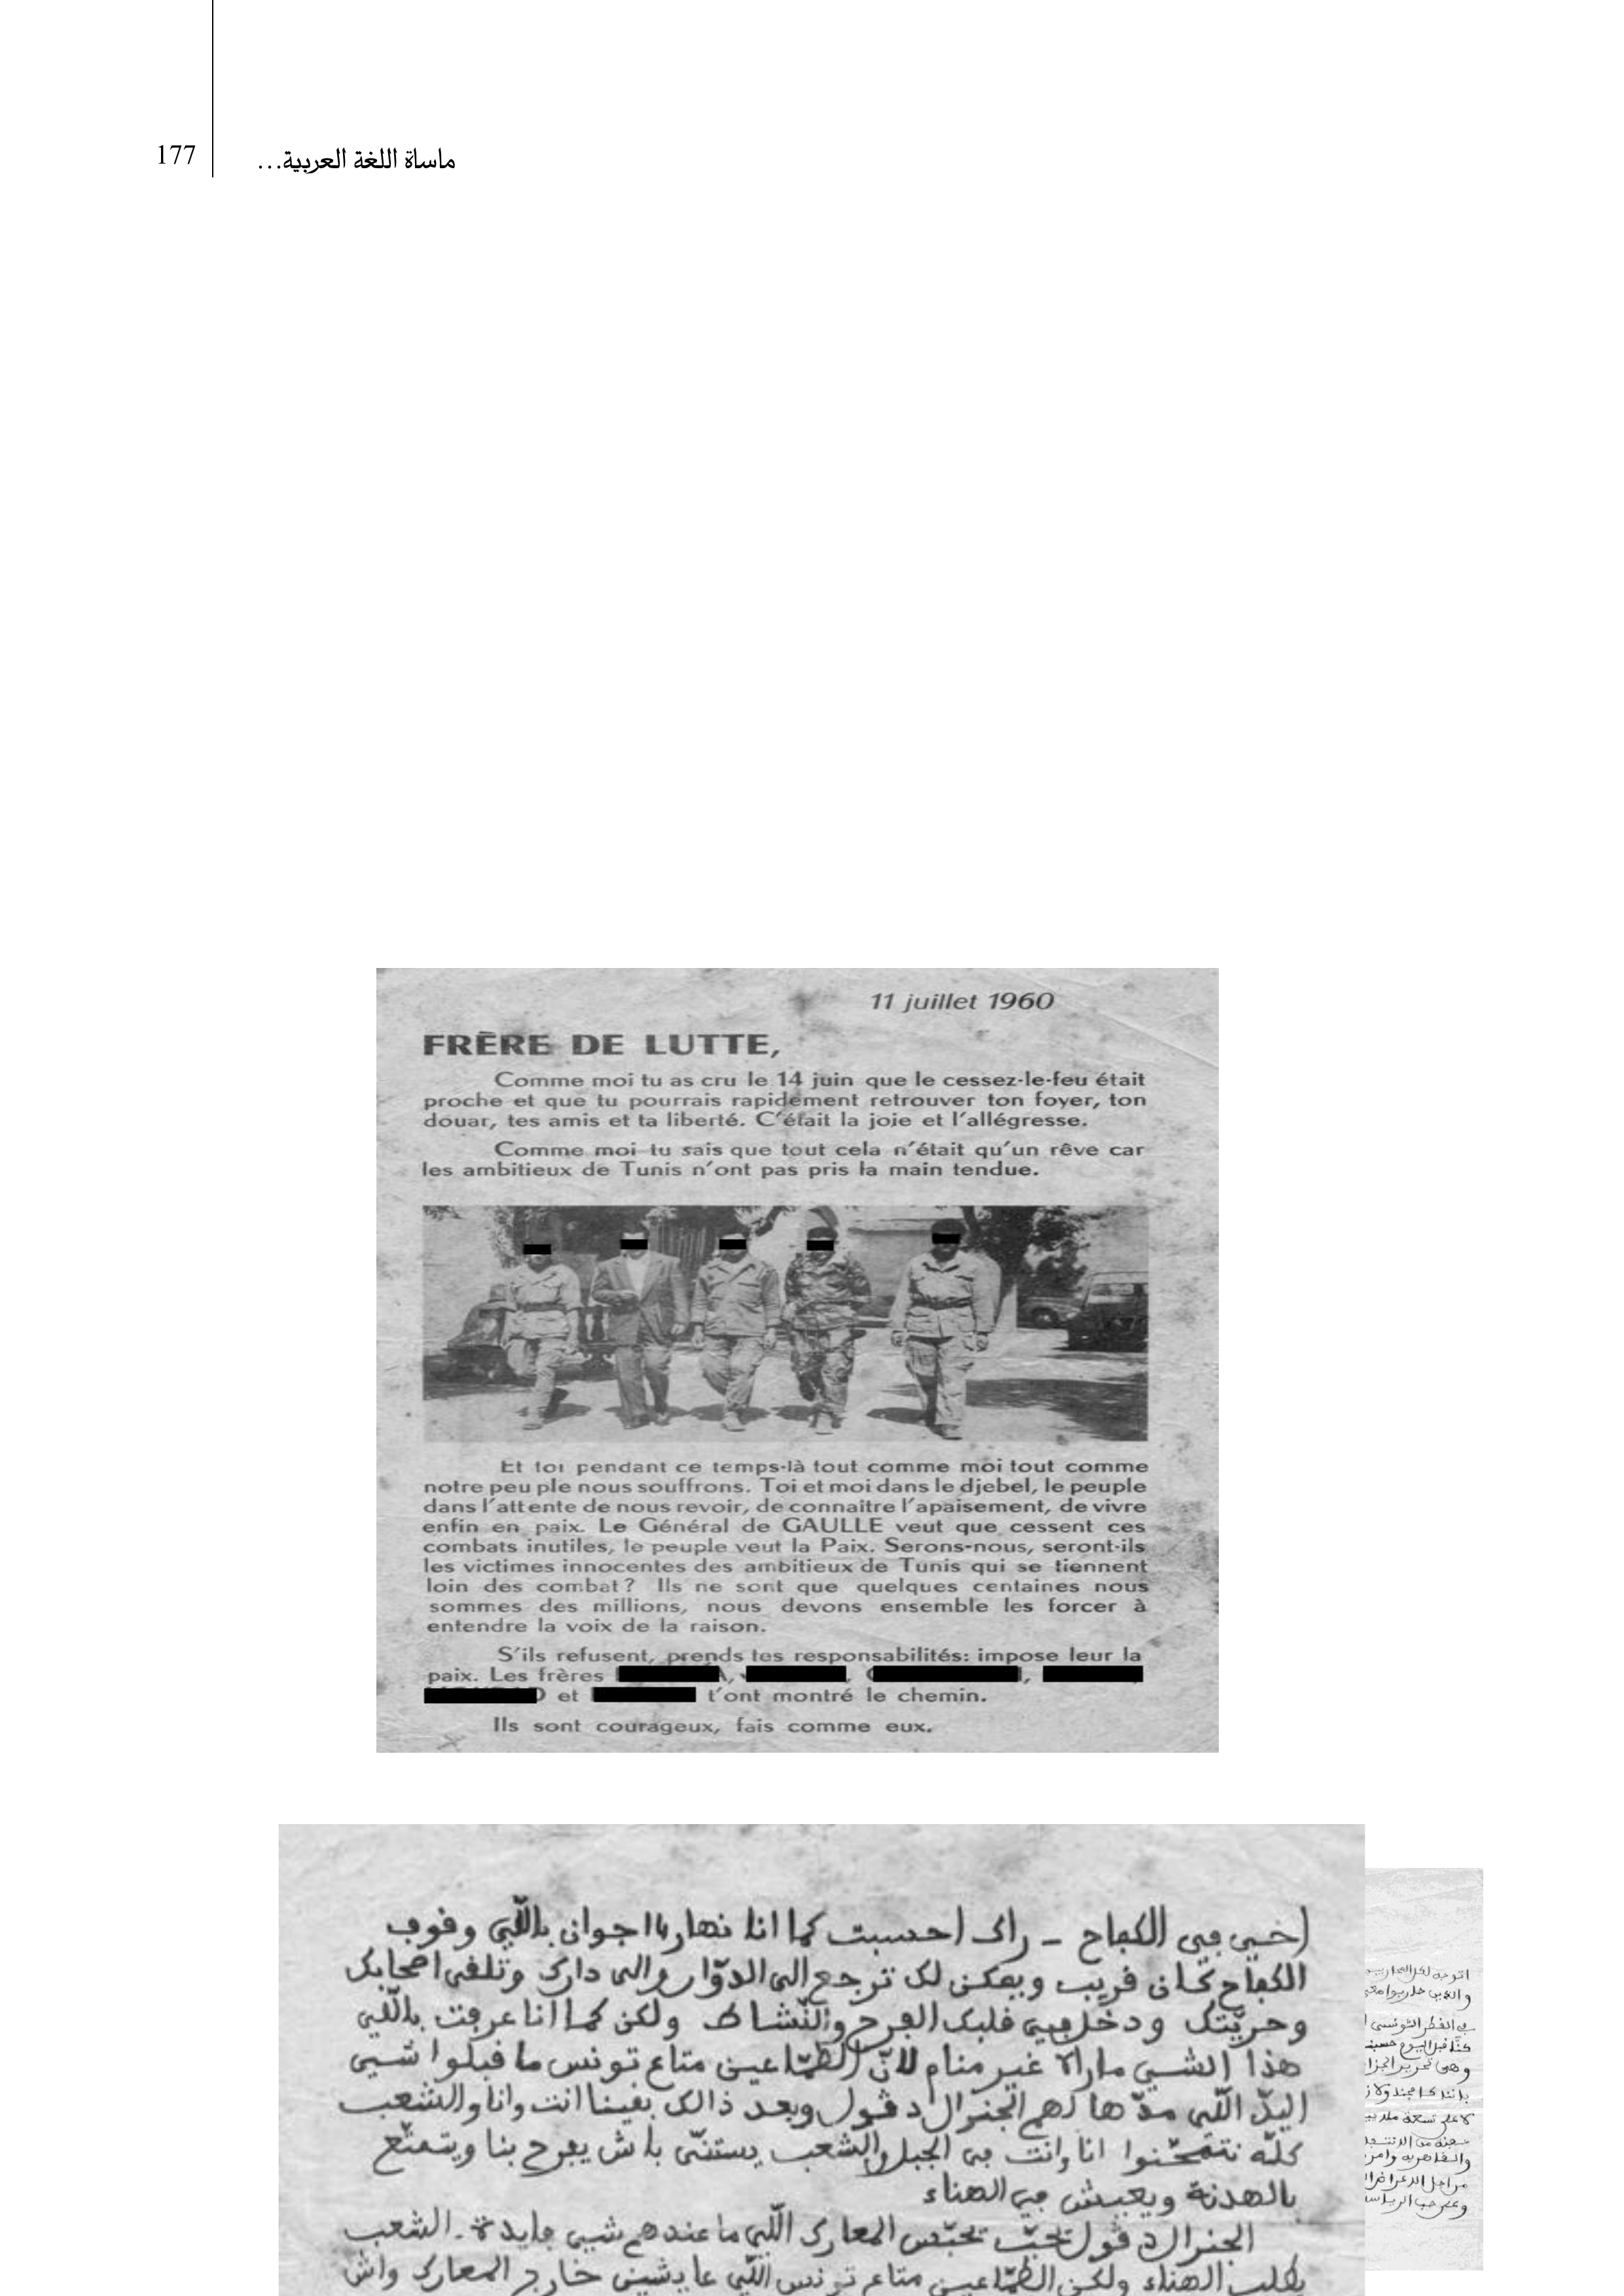 177
ماساة اللغة العربية...
11 juillet 1960
FRÈRE DE LUTTE,
Comme moi tu as cru le 14 juin que le cessez-le-feu était
proche et que tu pourrais rapidement retrouver ton foyer, ton
douar, tes amis et ta liberté. C'était la joie et l'allégresse.
Comme moi tu sais que tout cela n'était qu'un rêve car
les ambitieux de Tunis n'ont pas pris la main tendue.
Et toi pendant ce temps-là tout comme moi tout comme
notre peu ple nous souffrons. Toi et moi dans le djebel, le peuple
dans l'attente de nous revoir, de connaître l'apaisement, de vivre
enfin en paix. Le Général de GAULLE veut que cessent ces
combats inutiles, le peuple veut la Paix. Serons-nous, seront-ils
les victimes innocentes des ambitieux de Tunis qui se tiennent
loin des combat? Ils ne sont que quelques centaines nous
sommes des millions, nous devons ensemble les forcer à
entendre la voix de la raison.
S'ils refusent, prends tes responsabilités: impose leur la
paix. Les frères
et t'ont montré le chemin.
Ils sont courageux, fais comme eux.
اخي في الكفاح - راك احسبت كما انا نهار ١٤ جوان باللي وقوف
الكفاح كان قريب ويمكن لك ترجع الى الدوّار والى دارك وتلقى اصحابك
وحريّتك ودخل في قلبك الفرح والنّشاط ولكن كما انا عرفت باللّي
هذا الشي ماراه غير منام لانّ الطمّاعين متاع تونس ما قبلوا شي
اليدّ اللّي مدّها لهم الجنرال دڤول وبعد ذالك بقينا انت وانا والشعب
كلّه نتمحّنوا انا وانت في الجبل والشعب يستنّى باش يفرح بنا ويتمتّع
بالهدنة ويعيش في الهناء
الجنرال دڤول تحبّ تحبّس المعارك اللّي ما عندهم شي فايدة. الشعب
يطلب الهناء ولكن الطمّاعين متاع تونس اللّي عايشين خارج المعارك واش